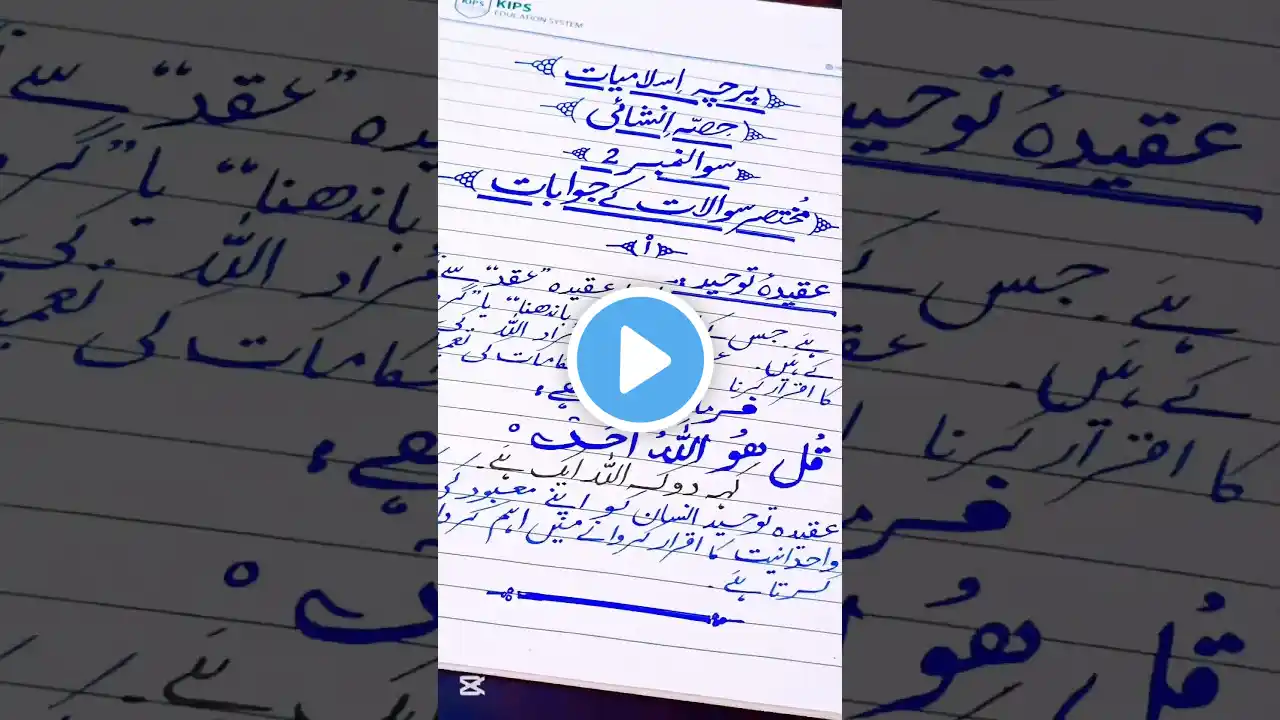 KIPS
EDUCATION SYSTEM
پرچہ اسلامیات
حصّہ انشائی
سوالنمبر 2
مُختصر سوالات کے جوابات
أ
عقیدۂ توحید: عقیدہ "عقد" سے
ہے۔ جس کے باندھنا" یا "گر
کے ہیں۔ مُراد اللہ کی
کا اقرار کرنا کامات کی تعمی
فرما ہے؛
قُل ھُو اللّٰہُ اَحَدٌ°
کہہ دو کہ اللہ ایک ہے۔
عقیدہ توحید انسان کو اپنے معبود کی
واحدانیت کا اقرار کروانے میں اہم کردا
کرتا ہے۔